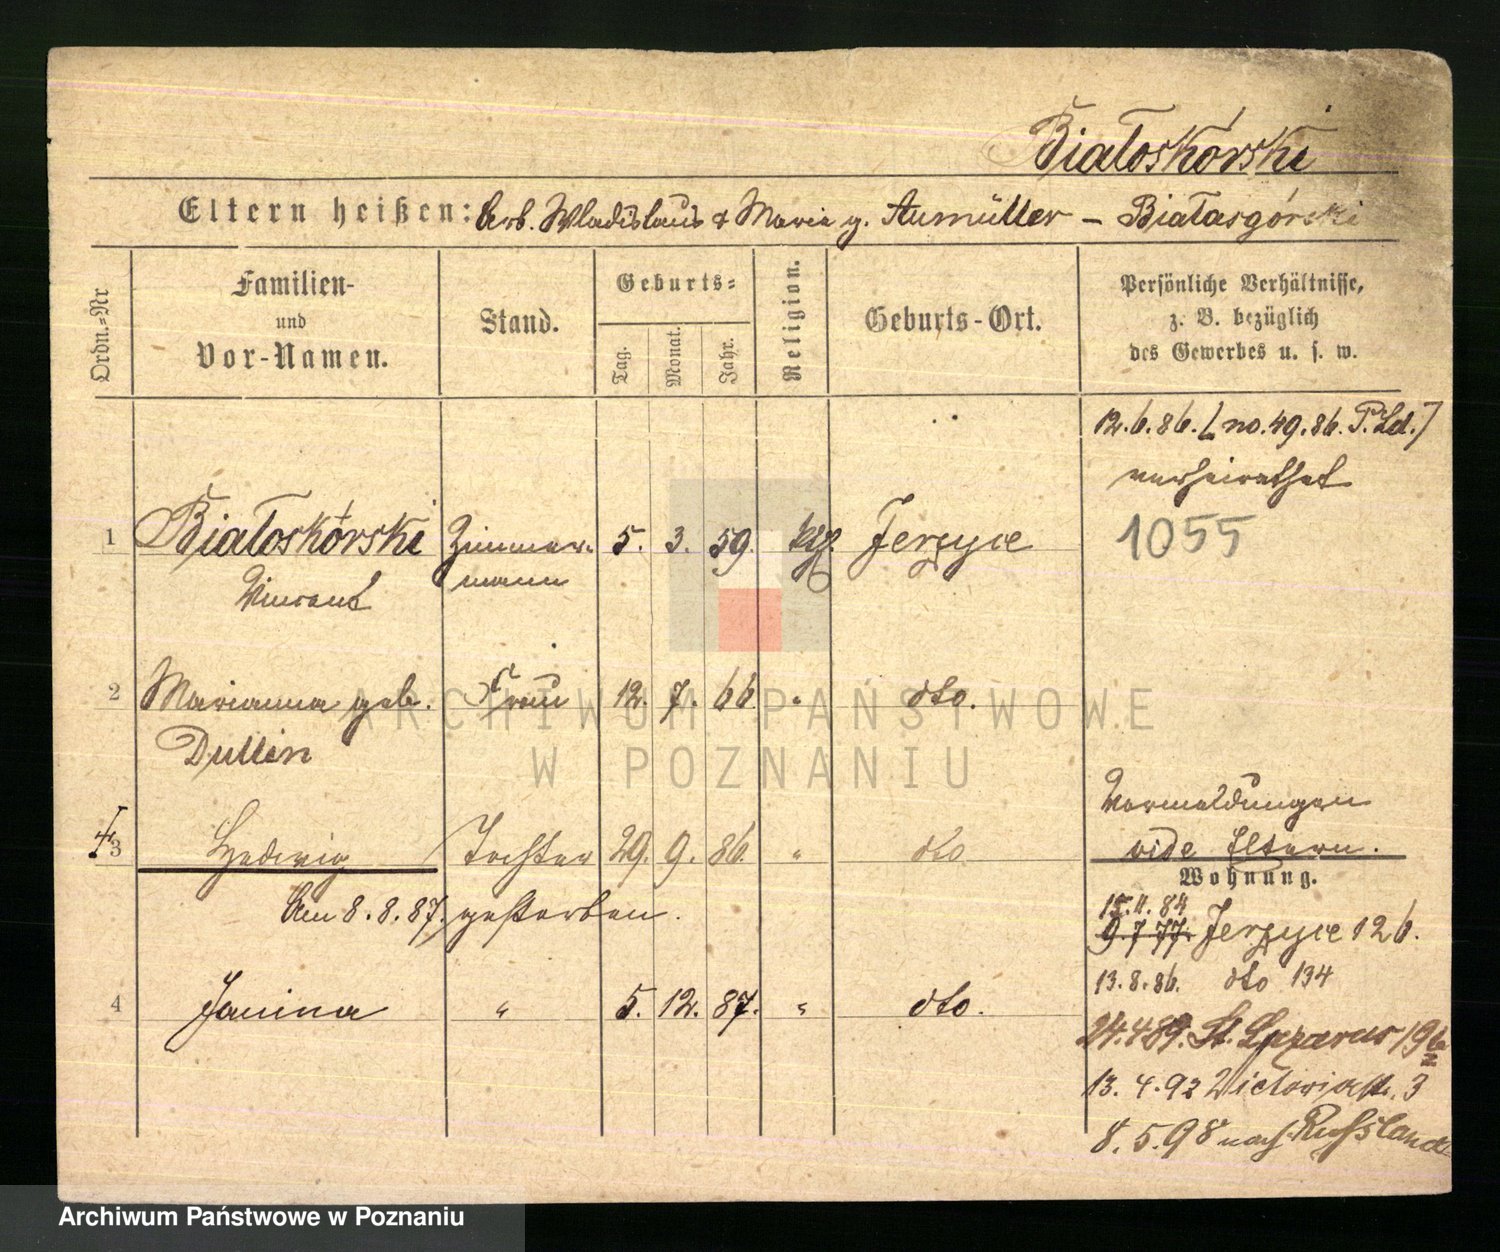 Białoskórski
Eltern heißen: Arb. Wladislaus & Maria g. Aumüller – Białasgórski
Ordn.-Nr
Familien-
und
Vor-Namen.
Stand.
Geburts-
Tag.
Monat.
Jahr.
Religion.
Geburts-Ort.
Persönliche Verhältnisse,
z. B. bezüglich
des Gewerbes u. s. w.
12.6.86. [no. 49.86. P. Ld.]
verheirathet
1 Białoskórski Zimmer- 5. 3. 59. kth. Jerzyce
1055
Vincent mann
2 Marianna geb. Frau 12. 7. 66. " dto.
Dullin
Vormeldungen
3 Hedwig Tochter 29. 9. 86. " dto
vide Eltern.
Wohnung.
Am 8.8.87. gestorben.
15.11.84
9.7.77. Jerzyce 126.
13.8.86. dto 134
4 Janina " 5. 12. 87. " dto.
24.4.89. St. Lazarus 196
13.4.92 Victoriastr. 3
8.5.98 nach Russland
ARCHIWUM PAŃSTWOWE
W POZNANIU
Archiwum Państwowe w Poznaniu